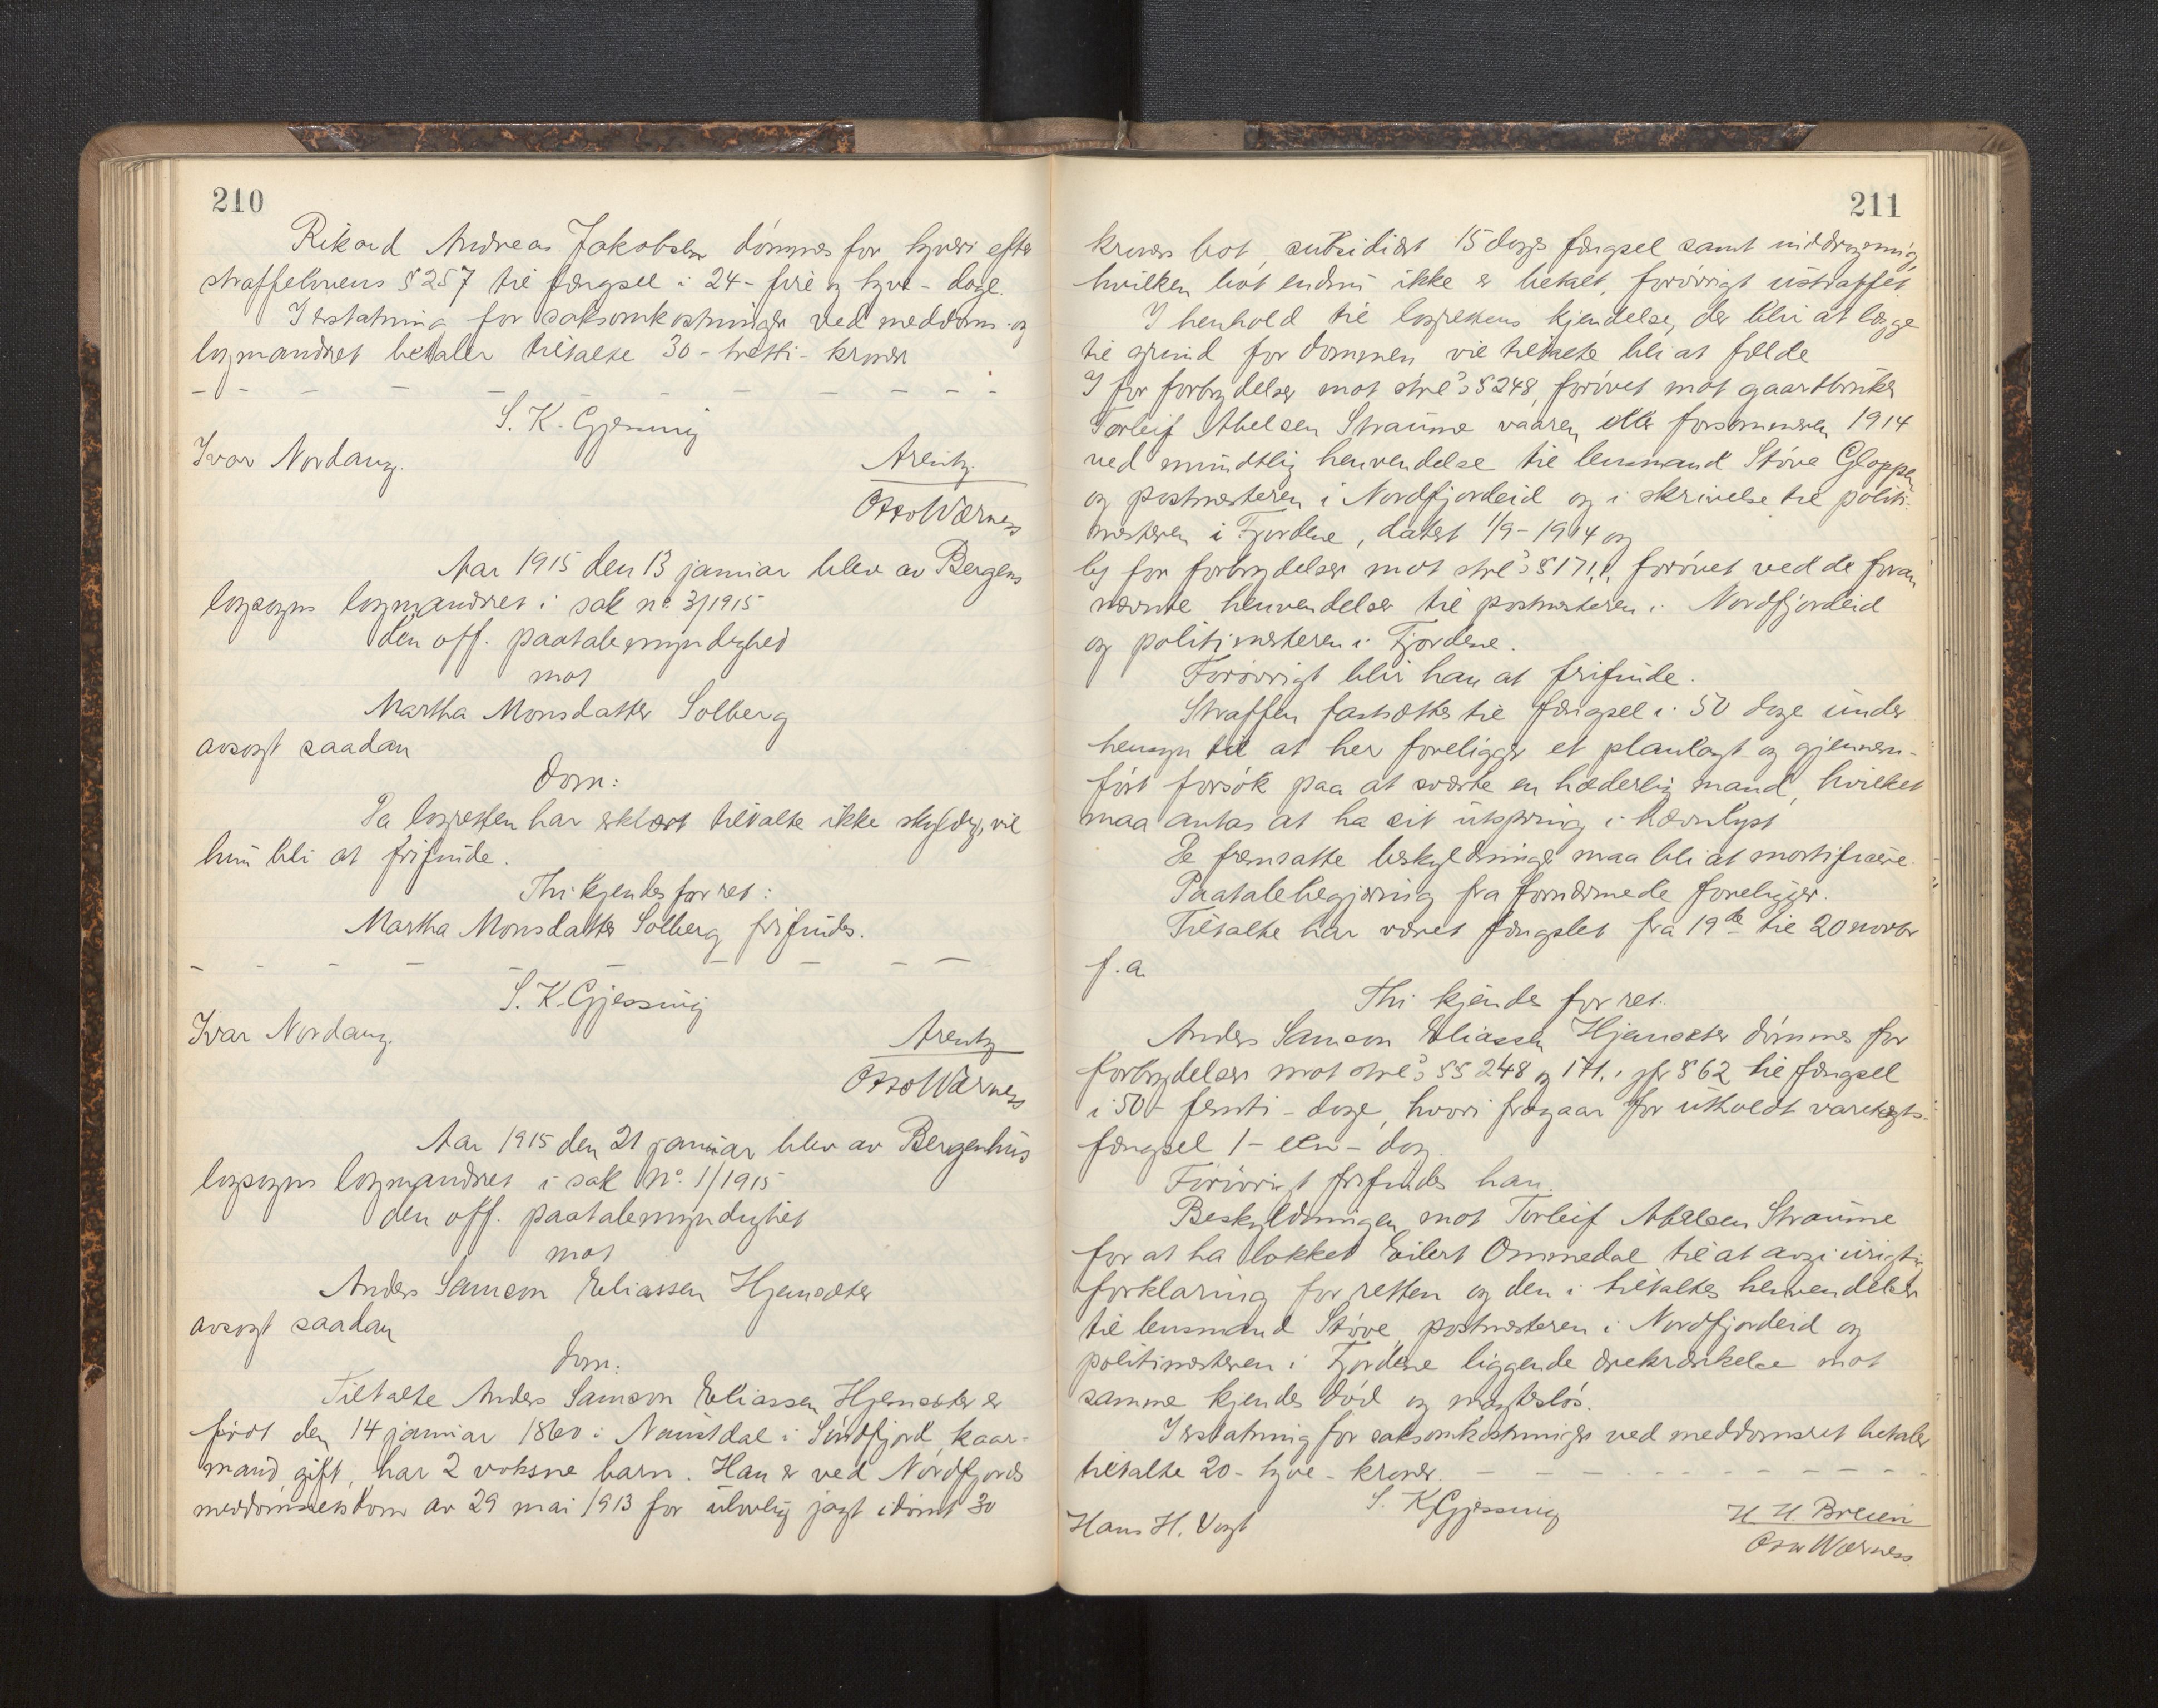 210
Rikard Andreas Jakobsen dømmes for tyveri efter
straffelovens § 257 til fængsel i 24 - fire og tyve - dage.
I erstatning for saksomkostninger ved meddoms- og
lagmandsret betaler tiltalte 30 - tretti - kroner
S. K. Gjessing
Ivar Nordang.
Arentz.
Otto Wærness
Aar 1915 den 13 januar blev av Bergens
lagsogns lagmandsret i sak no. 3/1915
den off. paatalemyndighed
mot
Martha Monsdatter Solberg
avsagt saadan
Dom:
Da lagretten har erklært tiltalte ikke skyldig, vil
hun bli at frifinde.
Thi kjendes for ret:
Martha Monsdatter Solberg frifindes.
S. K. Gjessing
Ivar Nordang.
Arentz
Otto Wærness
Aar 1915 den 21 januar blev av Bergenhus
lagsogns lagmandsret i sak No. 1/1915
den off. paatalemyndighet
mot
Anders Samson Eliassen Hjemsæter
avsagt saadan
Dom:
Tiltalte Anders Samson Eliassen Hjemsæter er
født den 14 januar 1860 i Naustdal i Søndfjord, kaar-
mand, gift, har 2 voksne barn. Han er ved Nordfjords
meddomsretsdom av 29 mai 1913 for ulovlig jagt idømt 30
211
kroners bot, subsidiært 15 dages fængsel samt inddragning,
hvilken bot endnu ikke er betalt, forøvrigt ustraffet.
I henhold til lagrettens kjendelse, der blir at lægge
til grund for dommen vil tiltalte bli at fælde
I for forbrydelse mot strl's § 248, forøvet mot gaardbruker
Torleif Abelsen Straume vaaren eller forsommeren 1914
ved mundtlig henvendelse til lensmand Støve Gloppen
og postmesteren i Nordfjordeid og i skrivelse til politi-
mesteren i Fjordene, datert 1/9 - 1914 og
b) for forbrydelser mot strl's § 171,1, forøvet ved de foran
nævnte henvendelser til postmesteren i Nordfjordeid
og politimesteren i Fjordene.
Forøvrigt blir han at frifinde.
Straffen fastsættes til fængsel i 50 dage under
hensyn til at her foreligger et planlagt og gjennem-
ført forsøk paa at sværte en hæderlig mand, hvilket
maa antas at ha sit utspring i hævnlyst
De fremsatte beskyldninger maa bli at mortificere.
Paatalebegjæring fra fornærmede foreligger.
Tiltalte har været fængslet fra 19de til 20 novbr
f. a.
Thi kjendes for ret:
Anders Samson Eliassen Hjemsæter dømmes for
forbrydelser mot strl's §§ 248 og 171,1 jfr § 62 til fængsel
i 50 - femti - dage, hvori fragaar for utholdt varetægts-
fængsel 1 - een - dag.
Forøvrigt frifindes han.
Beskyldningen mot Torleif Abelsen Straume
for at ha lokket Eilert Ommedal til at avgi urigtig
forklaring for retten og den i tiltaltes henvendelser
til lensmand Støve, postmesteren i Nordfjordeid og
politimesteren i Fjordene liggende ærekrænkelse mot
samme kjendes død og magtesløs.
I erstatning for saksomkostninger ved meddomsret betaler
tiltalte 20 - tyve - kroner.
S. K. Gjessing
Hans H. Vogt
H. H. Breien
Otto Wærness.